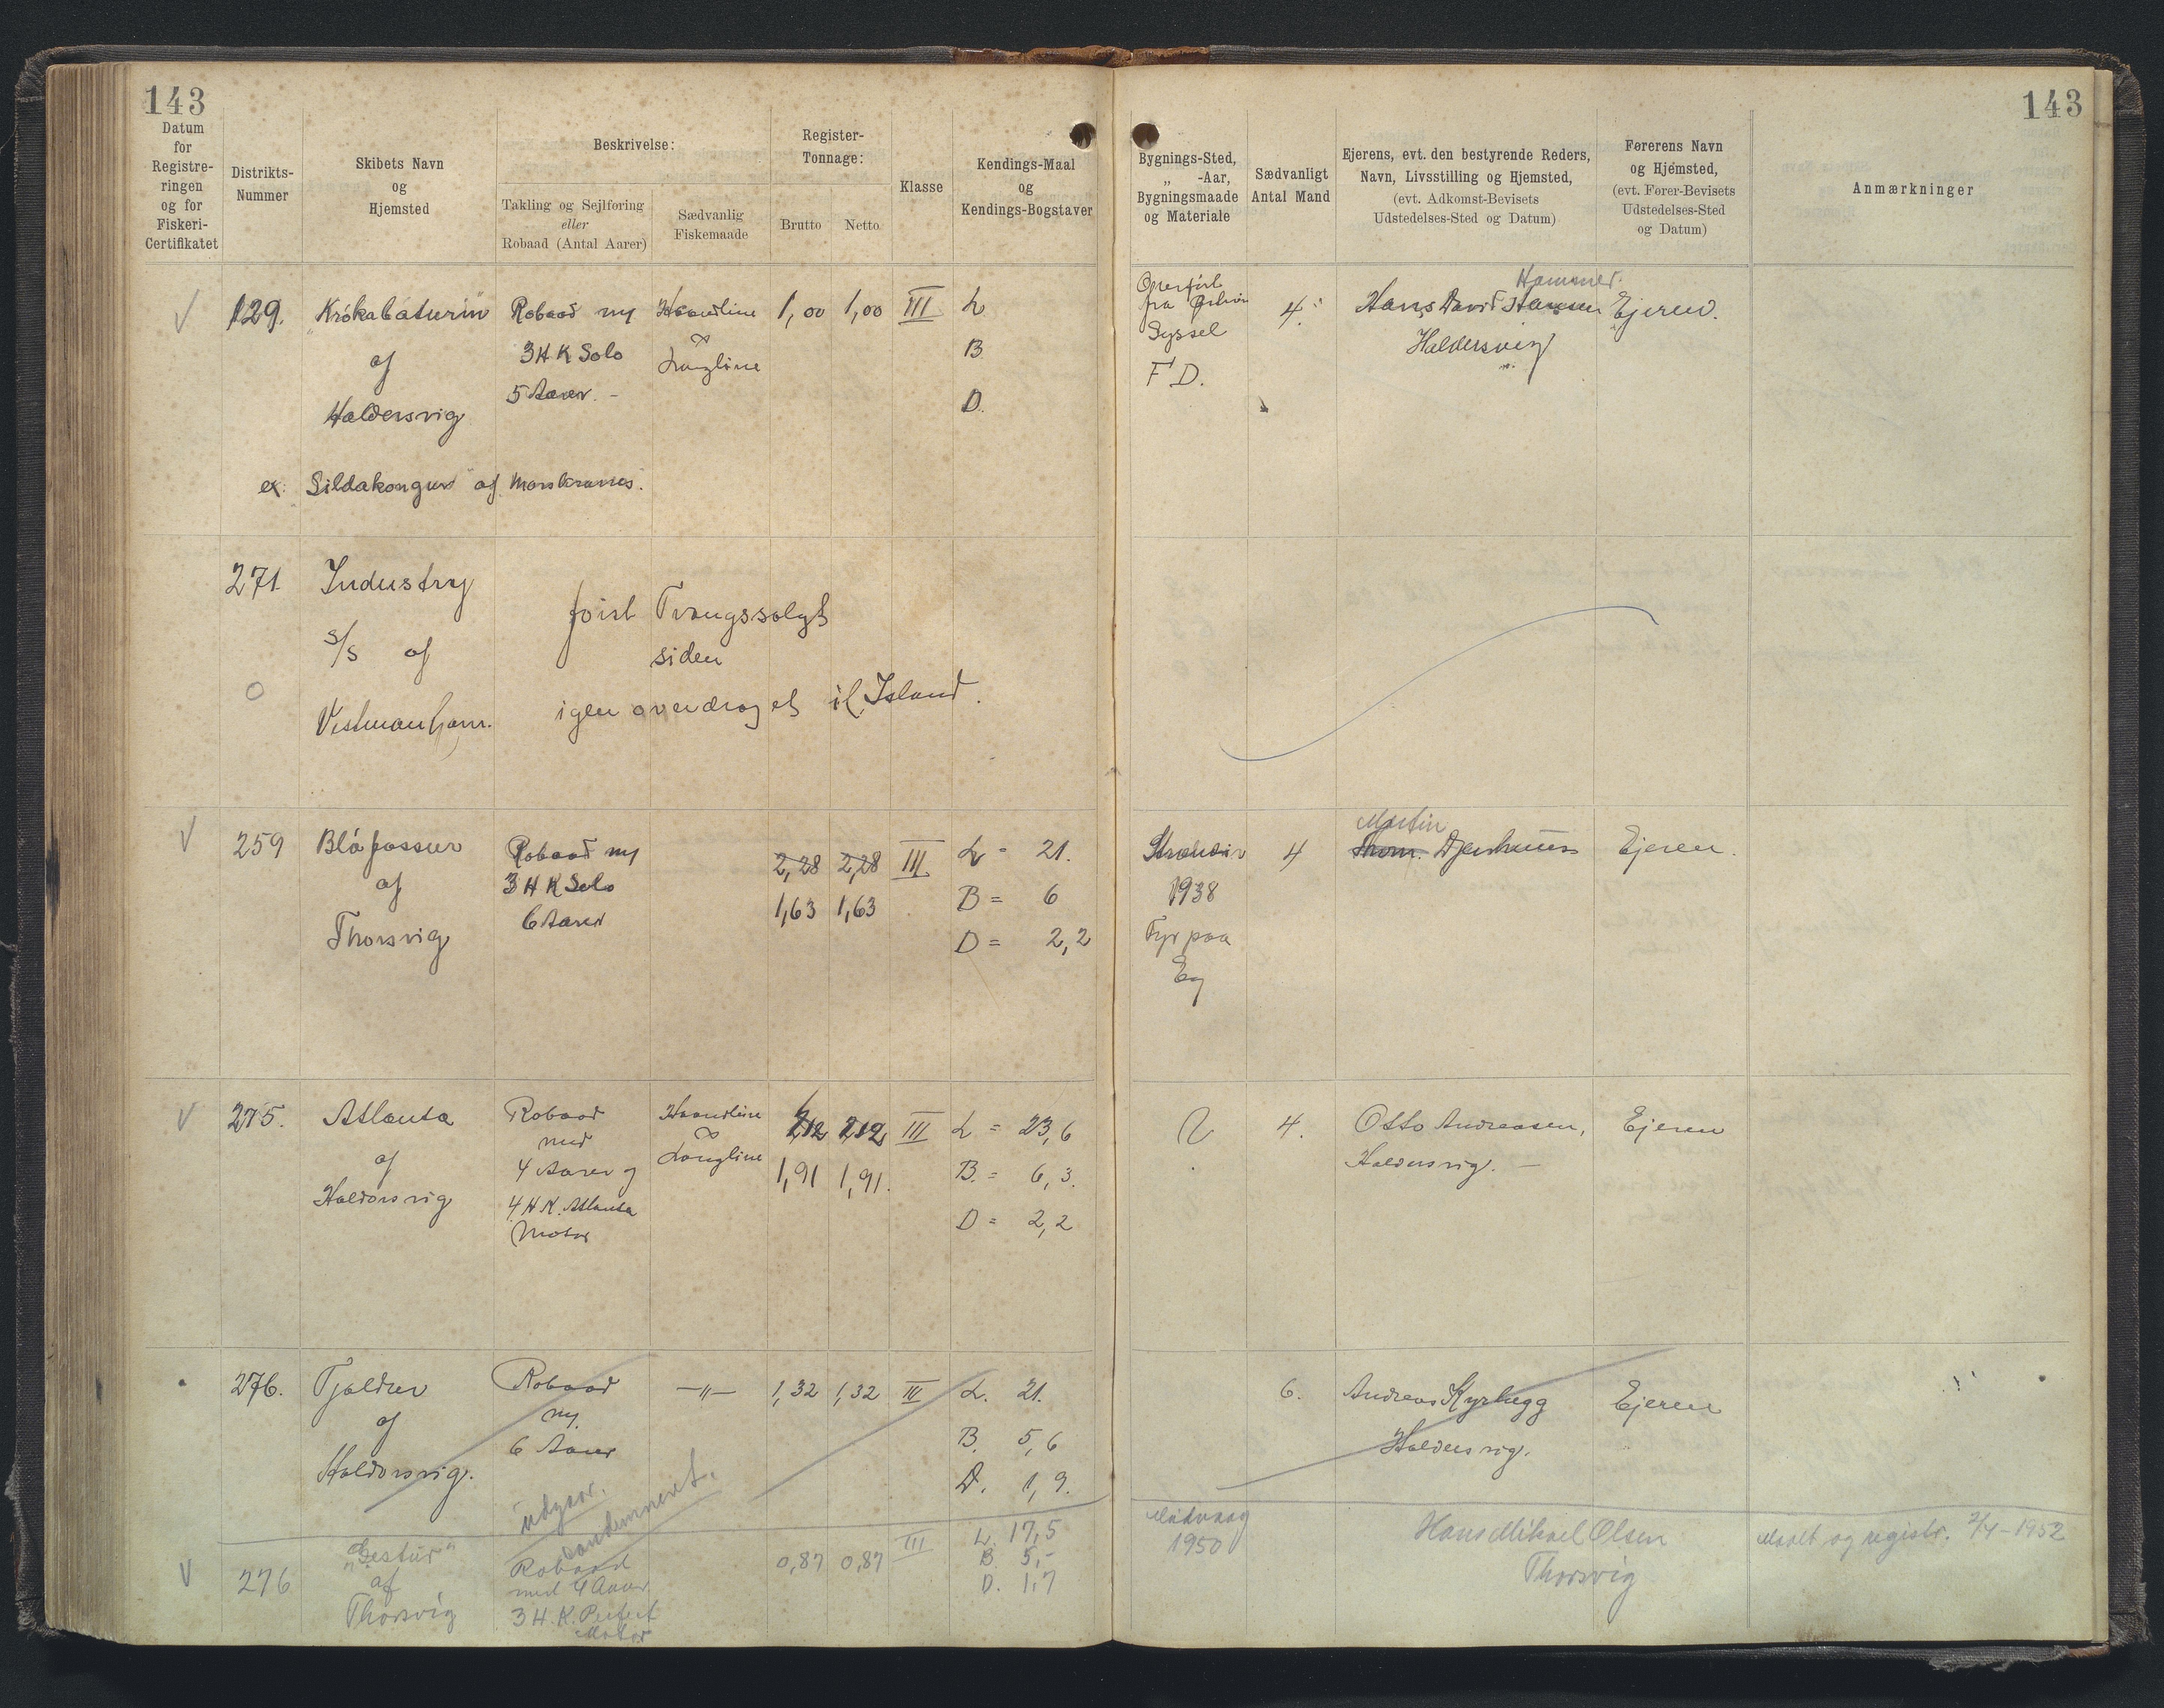 143
Datum
for
Registre-
ringen
og for
Fiskeri-
Certifikatet
Distrikts-
Nummer
Skibets Navn
og
Hjemsted
Beskrivelse:
Takling og Sejlføring
eller
Robaad (Antal Aarer)
Sædvanlig
Fiskemaade
Register-
Tonnage:
Brutto
Netto
Klasse
Kendings-Maal
og
Kendings-Bogstaver
129.
"Krókabáturin"
af
Haldersvig
ex. Sildakongur af
Robaad m/
3 H K Solo
5 Aarer. -
Haandline
&
Langline
1,00
1,00
III
L
B
D.
271.
Industry
s/s af
Vestmanhavn.
først Tvangssolgt
siden
igen overdraget til Island.
259
Bláfossur
af
Thorsvig
Robaad m/
3 H K Solo
6 Aarer
2,28
2,28
1,63
1,63
III
L = 21.
B = 6
D = 2,2
275.
Atlanta
af
Haldorsvig
Robaad
med
4 Aarer og
4 H.K. Atlanta
Motor
Haandline
&
Langline
2,12
2,12
1,91
1,91.
III
L = 23,6
B. = 6,3.
D = 2,2
276.
Tjaldur
af
Haldorsvig.
Robaad
m/
6 Aarer
—"—
1,32
1,32
III
L. 21.
B. 5,6
D. 1,9.
udgaar.
condemneret.
276
"Gestur"
af
Thorsvig
Robaad
med 4 Aarer
3 H.K. Perfect
Motor
0,87
0,87
III
L. 17,5
B. 5,-
D. 1,7
143
Bygnings-Sted,
„ -Aar,
Bygningsmaade
og Materiale
Sædvanligt
Antal Mand
Ejerens, evt. den bestyrende Reders,
Navn, Livsstilling og Hjemsted,
(evt. Adkomst-Bevisets
Udstedelses-Sted og Datum)
Førerens Navn
og Hjemsted,
(evt. Fører-Bevisets
Udstedelses-Sted
og Datum)
Anmærkninger
Overført
fra Østerø
Syssel
F D.
4.
Hammer.
Hans David Hansen
Haldersvig
Ejeren.
1938
Fyr paa
Eg
4
Martin
Thom. Djurhuus
Ejeren.
4.
Otto Andreasen,
Haldersvig. —
Ejeren
6.
Andreas Kyrhegg
Haldersvig.
Ejeren
Midvaag
1950
Hans Mikael Olsen
Thorsvig
Maalt og registr. 2/4-1952